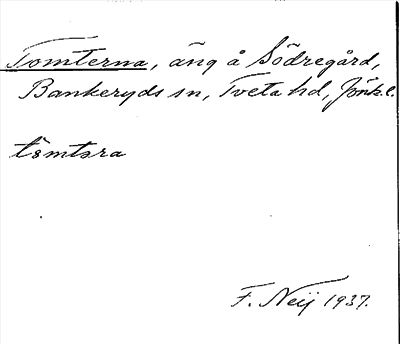 Tomterna, äng å Södregård,
Bankeryds sn, Tveta hd, Jönk.l.
tömtǝra
F. Neij 1937.